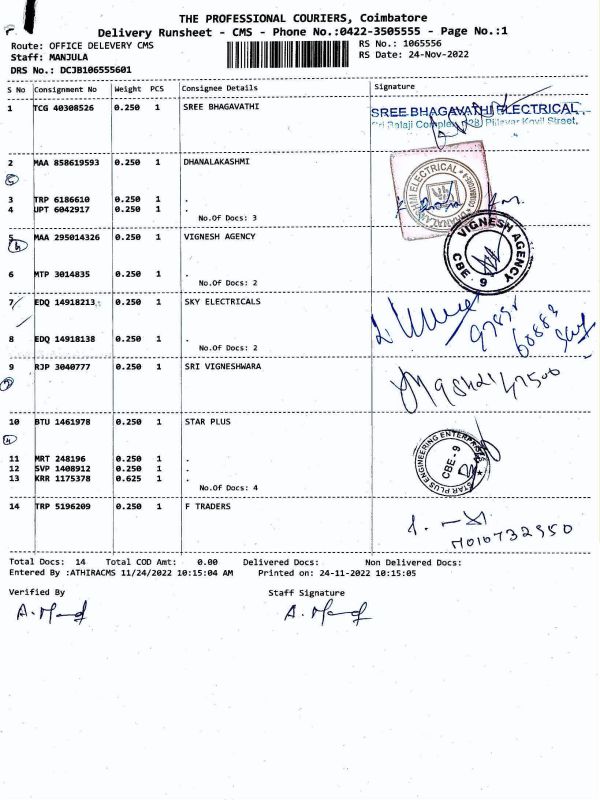 THE PROFESSIONAL COURIERS, Coimbatore
Delivery Runsheet - CMS - Phone No.:0422-3505555 - Page No.:1
Route: OFFICE DELEVERY CMS
RS No.: 1065556
Staff: MANJULA
RS Date: 24-Nov-2022
DRS No.: DCJB106555601
S No Consignment No Weight PCS Consignee Details Signature
1 TCG 40308526 0.250 1 SREE BHAGAVATHI
SREE BHAGAVATHI ELECTRICAL
2 MAA 858619593 0.250 1 DHANALAKASHMI
3 TRP 6186610 0.250 1 .
4 UPT 6042917 0.250 1 .
No.Of Docs: 3
5 MAA 295014326 0.250 1 VIGNESH AGENCY
VIGNESH AGENCY
CBE - 9
6 MTP 3014835 0.250 1 .
No.Of Docs: 2
7 EDQ 14918213 0.250 1 SKY ELECTRICALS
8 EDQ 14918138 0.250 1 .
No.Of Docs: 2
9 RJP 3040777 0.250 1 SRI VIGNESHWARA
10 BTU 1461978 0.250 1 STAR PLUS
STAR PLUS ENGINEERING ENTERPRISES
CBE - 9
11 MRT 248196 0.250 1 .
12 SVP 1408912 0.250 1 .
13 KRR 1175378 0.625 1 .
No.Of Docs: 4
14 TRP 5196209 0.250 1 F TRADERS
Total Docs: 14 Total COD Amt: 0.00 Delivered Docs: Non Delivered Docs:
Entered By :ATHIRACMS 11/24/2022 10:15:04 AM Printed on: 24-11-2022 10:15:05
Verified By Staff Signature